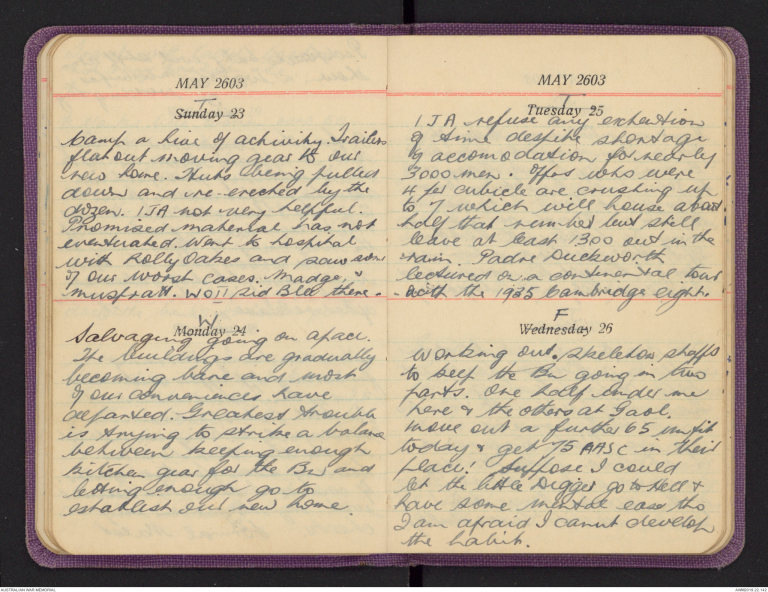 MAY 2603
T
Sunday 23
Camp a hive of activity. Trailers
flat out moving gear to our
new home. Huts being pulled
down and re-erected by the
dozen. IJA not very helpful.
Promised material has not
eventuated. Went to hospital
with Rolly Oakes and saw some
of our worst cases. Madge, &
Musfratt. WO II Sid Blee there.
W
Monday 24
Salvaging going on apace.
The buildings are gradually
becoming bare and most
of our conveniences have
departed. Greatest trouble
is trying to strike a balance
between keeping enough
kitchen gear for the Bn and
letting enough go to
establish our new home.
MAY 2603
T
Tuesday 25
IJA refuse any extention
of time despite shortage
of accomodation for nearly
3000 men. Offrs who were
4 per cubicle are crushing up
to 7 which will house about
half that number but still
leave at least 1300 out in the
rain. Padre Duckworth
lectured on a continental tour
with the 1935 Cambridge eight.
F
Wednesday 26
Working out skeleton staffs
to keep the Bn going in two
parts. One half under me
here & the others at Gaol.
Move out a further 65 unfit
today & get 75 AASC in their
place! Suppose I could
let the little Digger go to Hell &
have some mental ease tho
I am afraid I cannot develop
the habit.
AUSTRALIAN WAR MEMORIAL
AWM2019.22.142